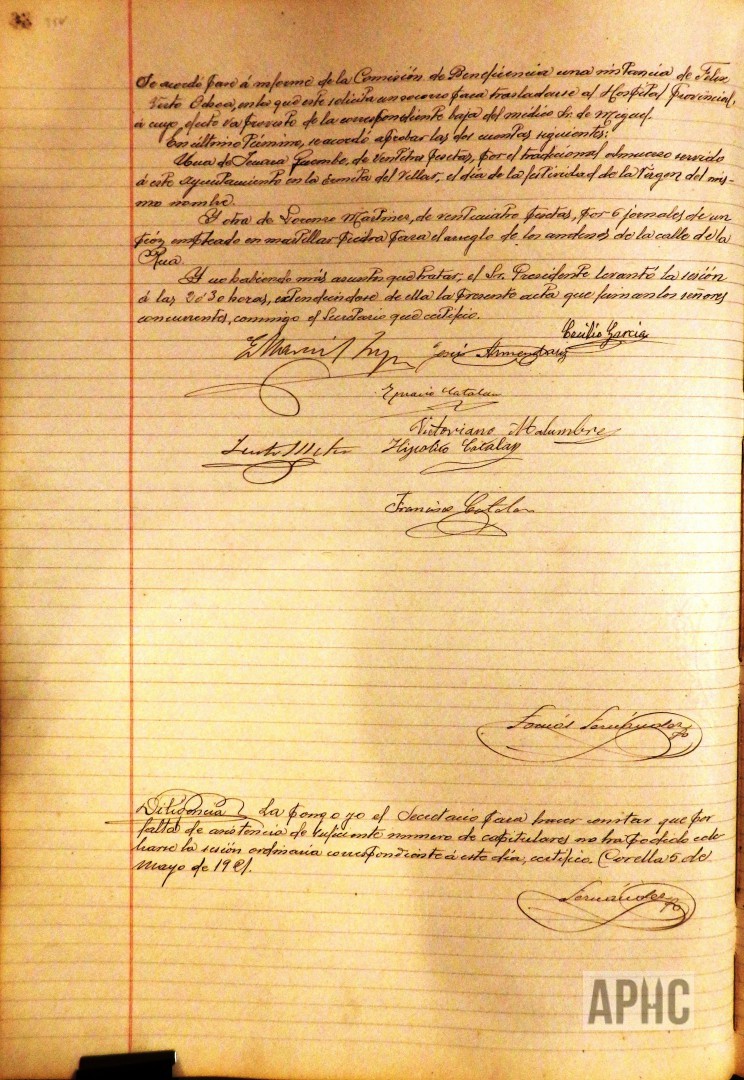 Se acordó pase á informe de la Comisión de Beneficencia una instancia de Felix
Ochoa, en la que este solicita un socorro para trasladarse al Hospital Provincial,
á cuyo efecto va provisto de la correspondiente baja del médico Sr. de Miguel.
En último término, se acordó aprobar las dos cuentas siguientes:
Una de de pesetas, por el tradicional almuerzo servido
á este Ayuntamiento en la Ermita del Villar, el día de la festividad de la Virgen del mis-
mo nombre.
Y otra de Lorenzo Martinez, de venticuatro pesetas, por 6 jornales de un
peón empleado en machacar piedra para el arreglo de los andenes de la calle de la
Rua.
Y no habiendo más asuntos que tratar, el Sr. Presidente levantó la sesión
á las horas, extendiéndose de ella la presente acta que firman los señores
concurrentes, conmigo el Secretario que certifico.
Cecilio Garcia
Jesús Armendariz
Ignacio Catalan
Victoriano Malumbres
Hipolito Catalan
Francisco Catalan
Tomás Fernández
Diligencia La pongo yo el Secretario para hacer constar que por
falta de asistencia de suficiente número de capitulares no ha podido cele-
brarse la sesión ordinaria correspondiente á este día, certifico. Corella 5 de
Mayo de 1921.
Fernández
APHC